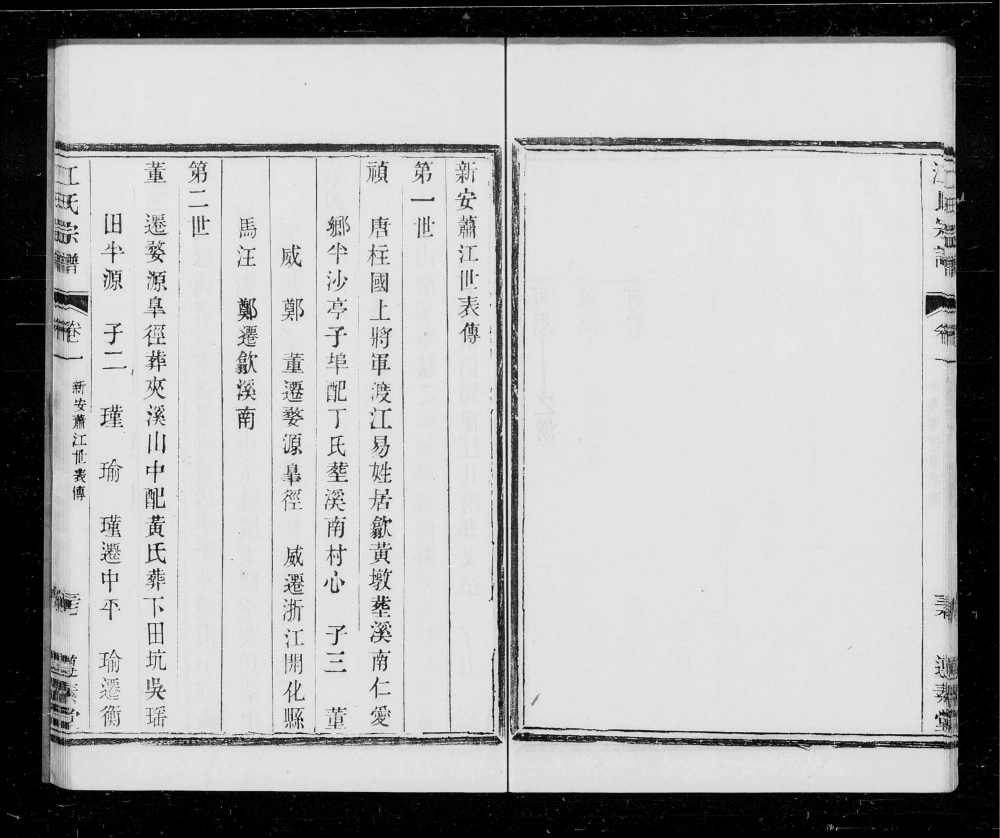 江氏宗譜
卷一
遵素堂
新安蕭江世表傳
第一世
禎　唐柱國上將軍渡江易姓居歙黃墩塟溪南仁愛
鄉半沙亭子埠配丁氏塟溪南村心　子三　董
威　鄭　董遷婺源皐徑　威遷浙江開化縣
馬汪　鄭遷歙溪南
第二世
董　遷婺源皐徑葬夾溪山中配黃氏葬下田坑吳瑶
田半源　子二　瑾　瑜　瑾遷中平　瑜遷衡
江氏宗譜
卷一
新安蕭江世表傳
遵素堂